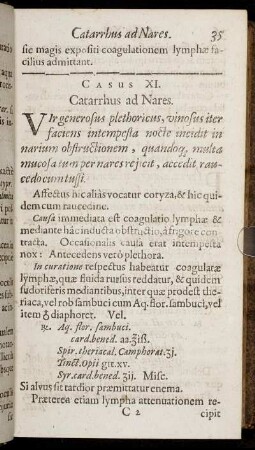 Catarrhus ad Nares. 35
sic magis expositi coagulationem lymphæ fa-
cilius admittant.
CASUS XI.
Catarrhus ad Nares.
VIr generosus plethoricus, vinosus iter
faciens intempesta nocte incidit in
narium obstructionem, quandoq; multa
mucosa tum per nares rejicit, accedit rau-
cedo cum tussi.
Affectus hic aliàs vocatur coryza, & hic qui-
dem cum raucedine.
Causa immediata est coagulatio lymphæ &
mediante hâc inducta obstructio, à frigore con-
tracta. Occasionalis causa erat intempesta
nox: Antecedens verò plethora.
In curatione respectus habeatur coagulatæ
lymphæ, quæ fluida rursus reddatur, & quidem
sudoriferis mediantibus, inter quæ prodest the-
riaca, vel rob sambuci cum Aq. flor. sambuci, vel
item ☿ diaphoret. Vel.
℞. Aq. flor. sambuci.
card. bened. aa. ℥iß.
Spir. theriacal. Camphorat. ʒj.
Tinct. Opii gtt. xv.
Syr. card. bened. ʒij. Misc.
Si alvus sit tardior præmittatur enema.
Præterea etiam lympha attenuationem re-
C 2 cipit